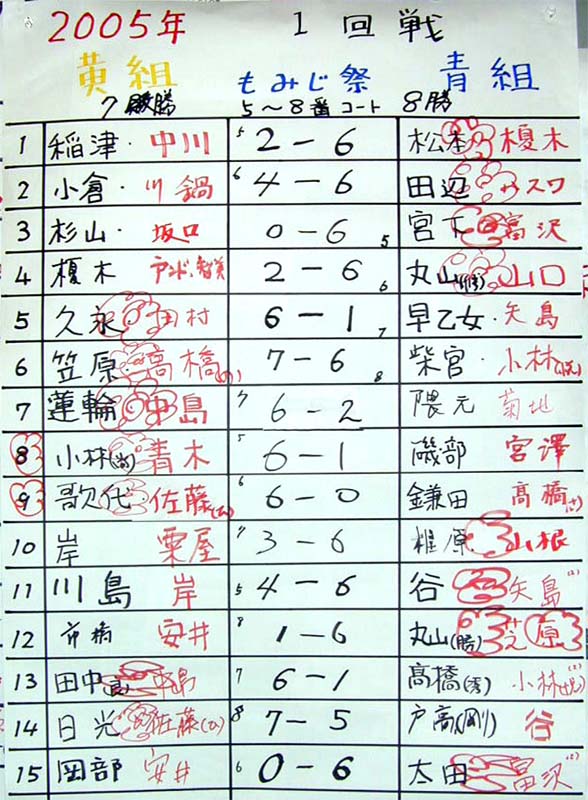 2005年 1回戦
黄組 もみじ祭 青組
7勝 5〜8番コート 8勝
1 稲津・中川 5 2-6 松本 榎木
2 小倉・川鍋 6 4-6 田辺 ヤスワ
3 杉山・坂口 0-6 5 宮下 富沢
4 榎木 アンド、智美 2-6 6 丸山(修) 山口
5 久永 田村 6-1 7 早乙女・矢島
6 笠原 高橋 7-6 8 柴宮・小林
7 蓮輪 中島 7 6-2 隈元 菊地
8 小林(尚) 青木 5 6-1 磯部 宮澤
9 歌代・佐藤 6 6-0 鎌田 高橋
10 岸 粟屋 7 3-6 椎原 山根
11 川島 岸 5 4-6 谷 矢島(2)
12 市橋 安井 8 1-6 丸山(勝) 原
13 田中 中島 7 6-1 高橋(秀) 小林
14 日光 佐藤 8 7-5 戸高(剛) 谷
15 岡部 安井 6 0-6 太田 富沢(2)